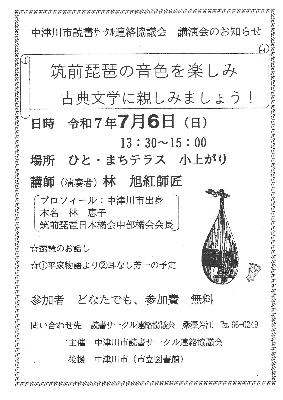 中津川市読書サークル連絡協議会　講演会のお知らせ
筑前琵琶の音色を楽しみ
古典文学に親しみましょう！
日時　令和７年７月６日（日）
１３：３０～１５：００
場所　ひと・まちテラス　小上がり
講師（演奏者）林　旭紅師匠
プロフィール：中津川市出身
本名　林　恵子
筑前琵琶日本橘会中部橘会会長
☆琵琶のお話し
☆①平家物語より②耳なし芳一の予定
参加者　どなたでも、参加費　無料
問い合わせ先　読書サークル連絡協議会　℡66-0249
主催　中津川市読書サークル連絡協議会
後援　中津川市（市立図書館）